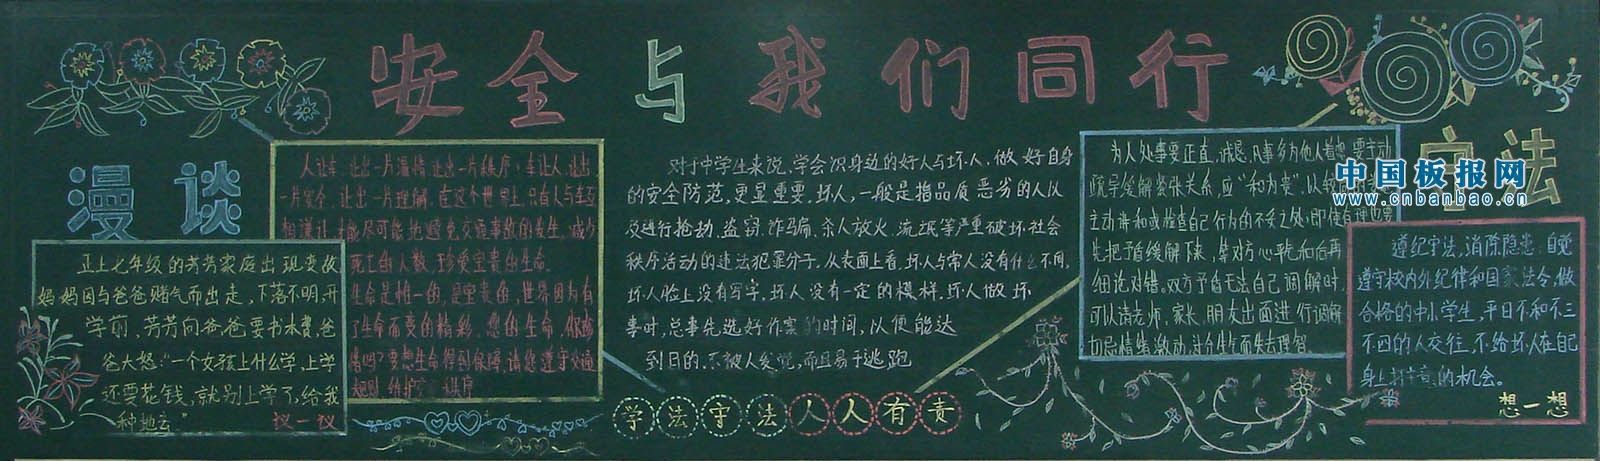 安全与我们同行
漫谈
正上七年级的芳芳家庭出现变故
妈妈因与爸爸赌气而出走，下落不明，开
学前，芳芳向爸爸要书本费，爸
爸大怒："一个女孩上什么学，上学
还要花钱，就别上学了，给我
种地去"
议一议
人让车，让出一片温情，让出一片秩序；车让人，让出
一片安全，让出一片理解。在这个世界上，只有人与车互
相谦让，才能尽可能地避免交通事故的发生，减少
死亡的人数，珍爱宝贵的生命。
生命是惟一的，是宝贵的，世界因为有
了生命而变的精彩。您的生命，
吗？要想生命得到保障，请您遵守交通
规则，维护 秩序
对于中学生来说，学会识身边的好人与坏人，做好自身
的安全防范，更显重要，坏人，一般是指品质恶劣的人以
及进行抢劫、盗窃、诈骗、杀人放火、流氓等严重破坏社会
秩序活动的违法犯罪分子。从表面上看，坏人与常人没有什么不同，
坏人脸上没有写字，坏人没有一定的模样，坏人做坏
事时，总事先选好作案的时间，以便能达
到目的，不被人发觉，而且易于逃跑
学法守法人人有责
为人处事要正直，诚恳，凡事多为他人着想，要主动
疏导缓解紧张关系，应"和为贵"，以
主动讲和或检查自己行为的不妥之处，即使有理也要
先把矛盾缓解下来，等对方心平气和后再
细论对错。双方矛盾无法自己调解时，
可以请老师，家长，朋友出面进行调解
切忌情绪激动，
守法
遵纪守法，消除隐患，自觉
遵守校内外纪律和国家法令，做
合格的中小学生，平日不和不三
不四的人交往，不给坏人在自己
身上打主意的机会。
想一想
中国板报网
www.cnbanbao.cn